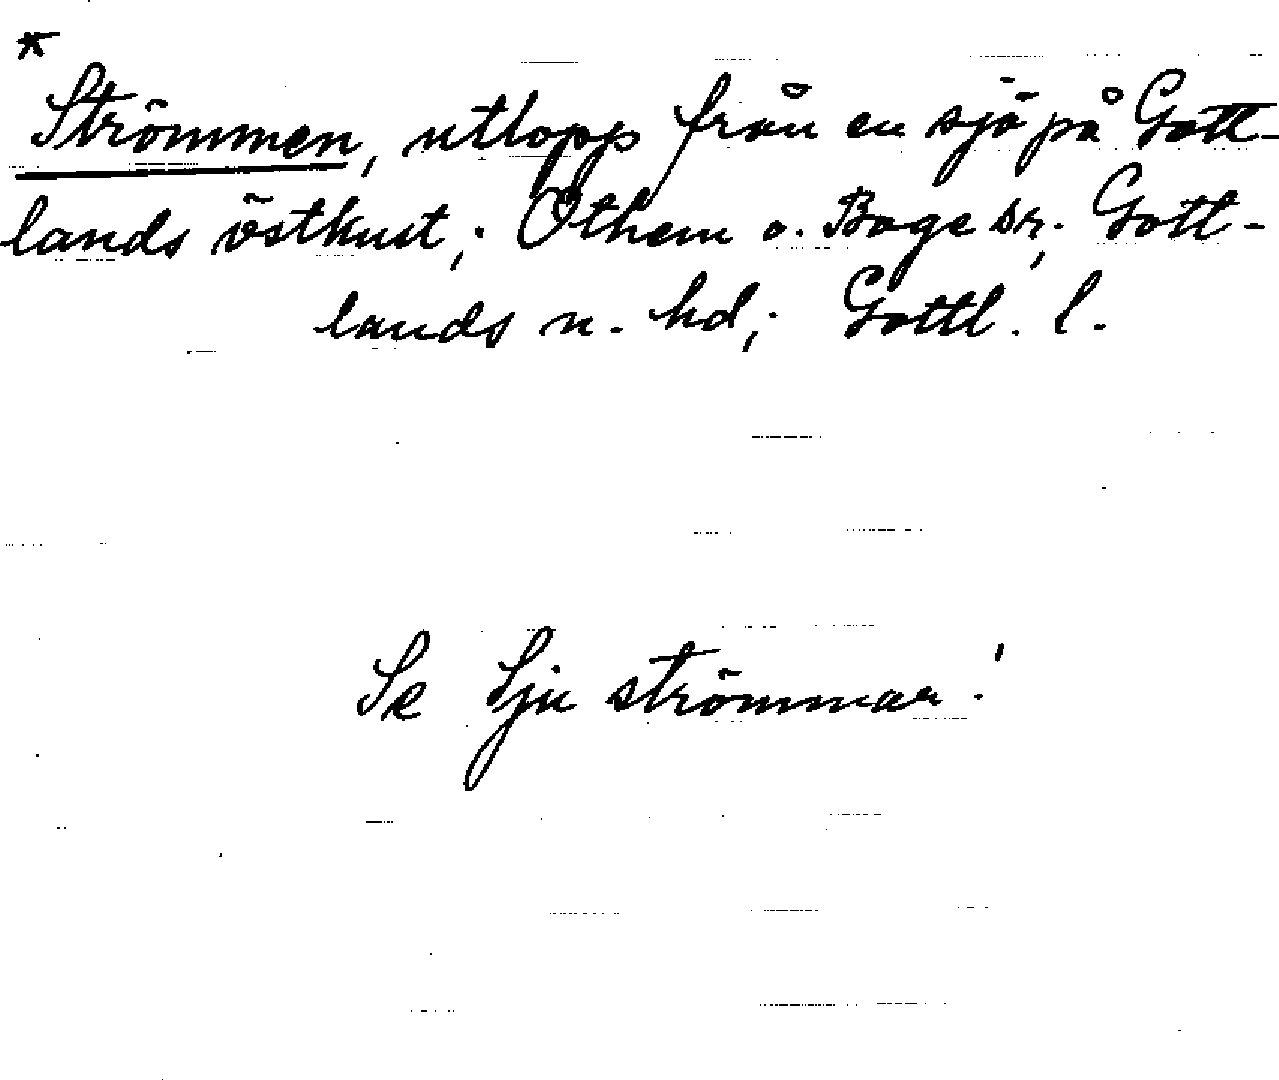 *
Strömmen, utlopp från en sjö på Gott-
lands östkust; Othem o. Boge sr; Gott-
lands n. hd; Gottl. l.
Se Sju strömmar!